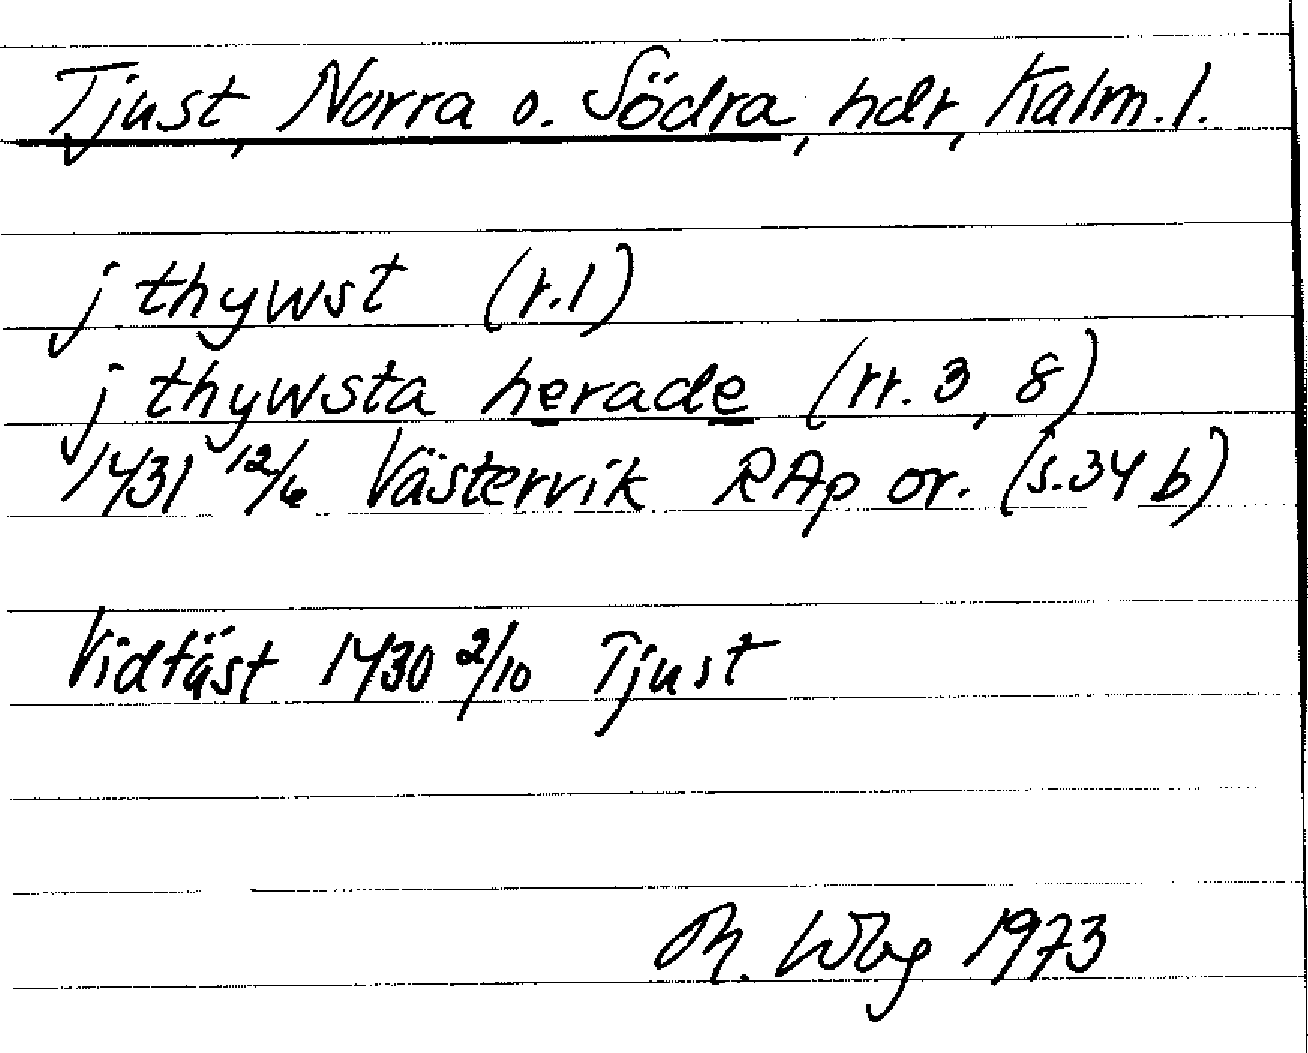 Tjust, Norra o. Södra, hdr, Kalm. l.
j thywst (r.1)
j thywsta herade (rr. 3, 8)
1431 12/6 Västervik RAp or. (s.34 b)
Vidfäst 1430 2/10 Tjust
M. Wbg 1973